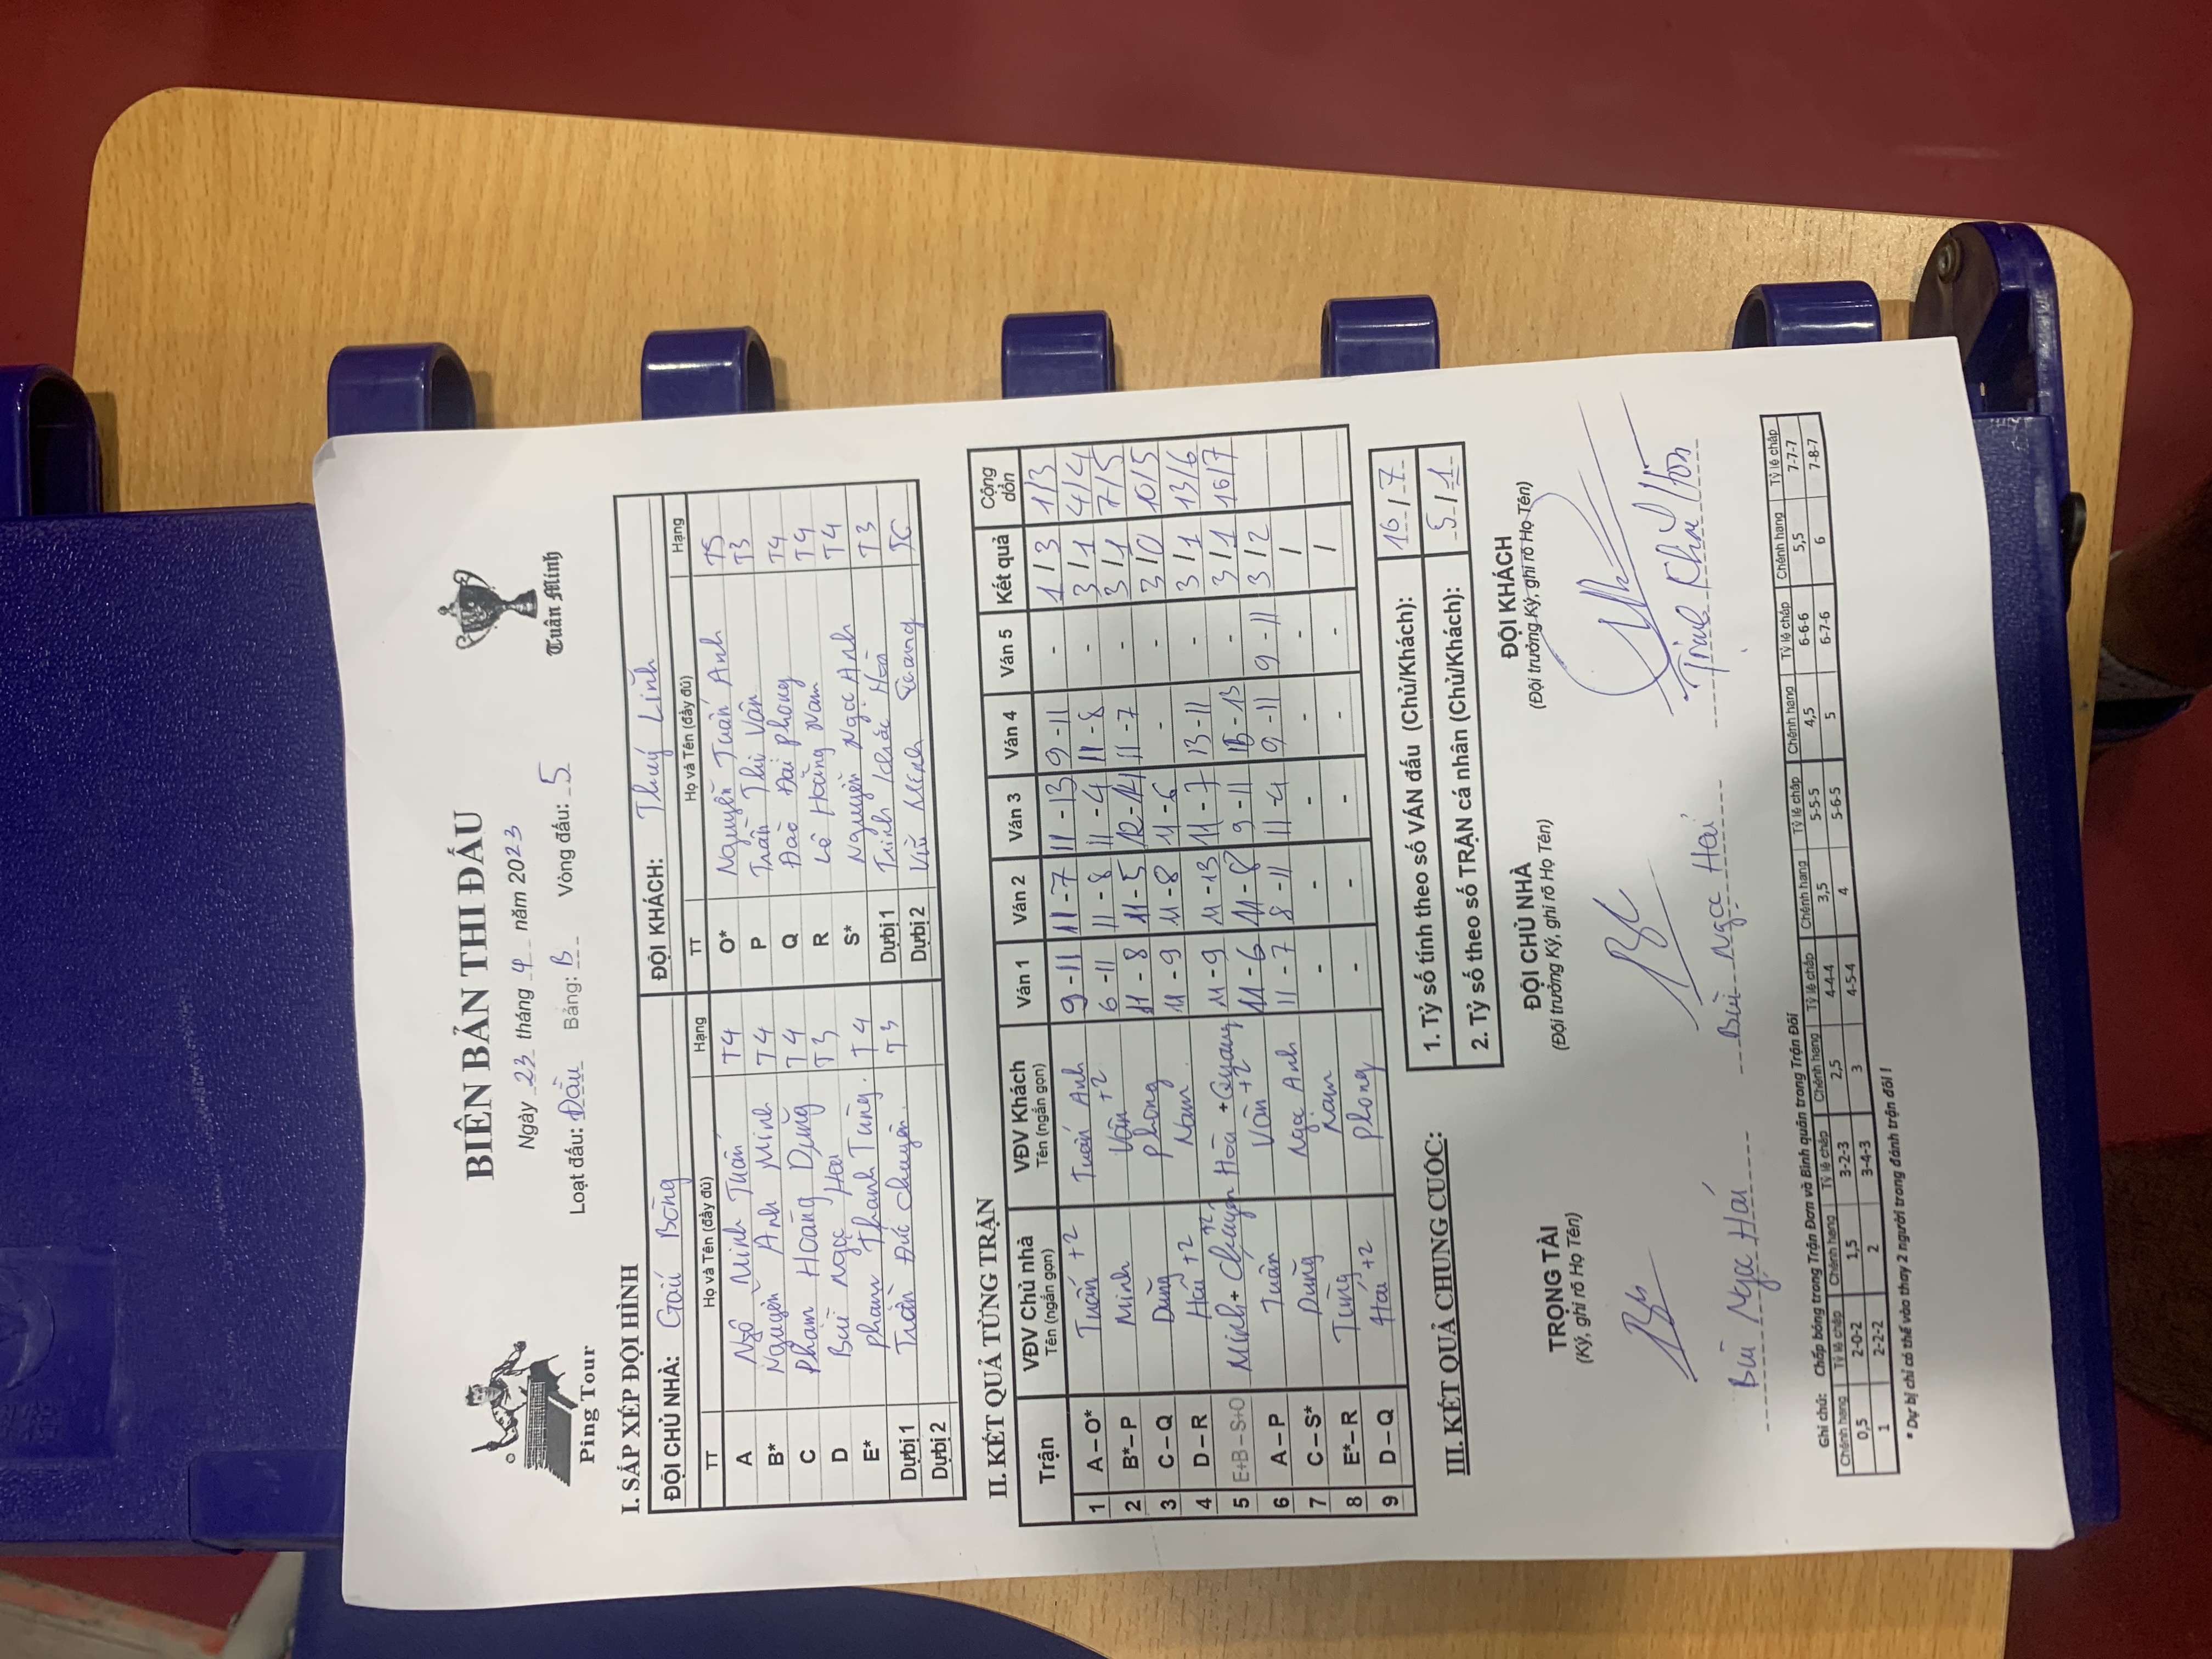 Ping Tour
BIÊN BẢN THI ĐẤU
Ngày 23 tháng 4 năm 2023
Loạt đấu: Đầu Bảng: B Vòng đấu: 5
Tuấn Minh
I. SẮP XẾP ĐỘI HÌNH
ĐỘI CHỦ NHÀ: Gait Bòng ĐỘI KHÁCH: Thuỳ Linh
TT Họ và Tên (đầy đủ) Hạng TT Họ và Tên (đầy đủ) Hạng
A Ngô Minh Tuấn T4 O* Nguyễn Tuấn Anh T5
B* Nguyễn Anh Minh T4 P Trần Thị Vân T3
C Phạm Hoàng Dũng T4 Q Đào Đại Phong T4
D Bùi Ngọc Hải T3 R Lê Hoàng Nam T4
E* Phạm Thanh Tùng T4 S* Nguyễn Ngọc Anh T4
Dự bị 1 Trần Đức Chuyên T3 Dự bị 1 Trịnh Khắc Hoà T3
Dự bị 2 Dự bị 2 Vũ Minh Quang
II. KẾT QUẢ TỪNG TRẬN
Trận VĐV Chủ nhà Tên (ngắn gọn) VĐV Khách Tên (ngắn gọn) Ván 1 Ván 2 Ván 3 Ván 4 Ván 5 Kết quả Cộng dồn
1 A – O* Tuấn +2 Tuấn Anh 9 - 11 11 - 7 11 - 13 9 - 11 - 1 / 3 1/3
2 B* – P Minh Vân +2 6 - 11 11 - 8 11 - 4 11 - 8 - 3 / 1 4/4
3 C – Q Dũng Phong 11 - 8 11 - 5 12 - 14 11 - 7 - 3 / 1 7/5
4 D – R Hải +2 Nam 11 - 9 11 - 8 11 - 6 - - 3 / 0 10/5
5 E+B – S+O Minh + Chuyên +2 Hoà + Quang 11 - 9 11 - 13 11 - 7 13 - 11 - 3 / 1 13/6
6 A – P Tuấn Vân +2 11 - 6 11 - 8 9 - 11 15 - 13 - 3 / 1 16/7
7 C – S* Dũng Ngọc Anh 11 - 7 8 - 11 11 - 4 9 - 11 9 - 11 3 / 2
8 E* – R Tùng Nam - - - - - /
9 D – Q Hải +2 Phong - - - - - /
III. KẾT QUẢ CHUNG CUỘC:
1. Tỷ số tính theo số VÁN đấu (Chủ/Khách): 16 / 7
2. Tỷ số theo số TRẬN cá nhân (Chủ/Khách): 5 / 1
TRỌNG TÀI ĐỘI CHỦ NHÀ ĐỘI KHÁCH
(Ký, ghi rõ Họ Tên) (Đội trưởng Ký, ghi rõ Họ Tên) (Đội trưởng Ký, ghi rõ Họ Tên)
Bùi Ngọc Hải Bùi Ngọc Hải Trịnh Khắc Hoà
Ghi chú: Chấp bóng trong Trận Đơn và Bình quân trong Trận Đôi
Chênh hạng Tỷ lệ chấp Chênh hạng Tỷ lệ chấp Chênh hạng Tỷ lệ chấp Chênh hạng Tỷ lệ chấp Chênh hạng Tỷ lệ chấp Chênh hạng Tỷ lệ chấp
0,5 2-0-2 1,5 3-2-3 2,5 4-4-4 3,5 5-5-5 4,5 6-6-6 5,5 7-7-7
1 2-2-2 2 3-4-3 3 4-5-4 4 5-6-5 5 6-7-6 6 7-8-7
* Dự bị chỉ có thể vào thay 2 người trong đánh trận đôi !